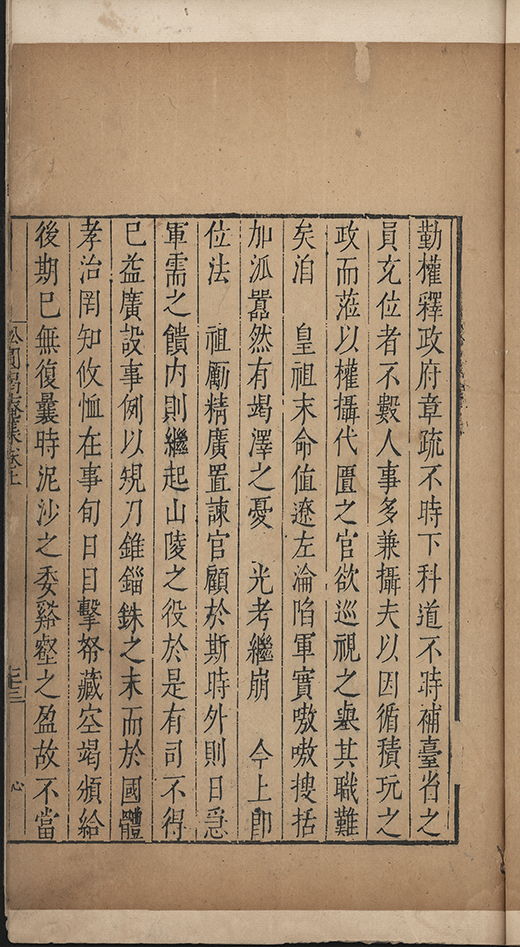 勤權釋政府章疏不時下科道不時補臺省之
員充位者不數人事多兼攝夫以因循積玩之
政而蒞以權攝代匱之官欲巡視之舉其職難
矣洎　皇祖末命值遼左淪陷軍實嗷嗷搜括
加派囂然有竭澤之憂　光考繼崩　今上卽
位法　祖勵精廣置諫官顧於斯時外則日急
軍需之饋内則繼起山陵之役於是有司不得
已益廣設事例以規刀錐錙銖之末而於國體
孝治罔知攸恤在事旬日目擊帑藏空竭頒給
後期已無復曩時泥沙之委谿壑之盈故不當
卷上